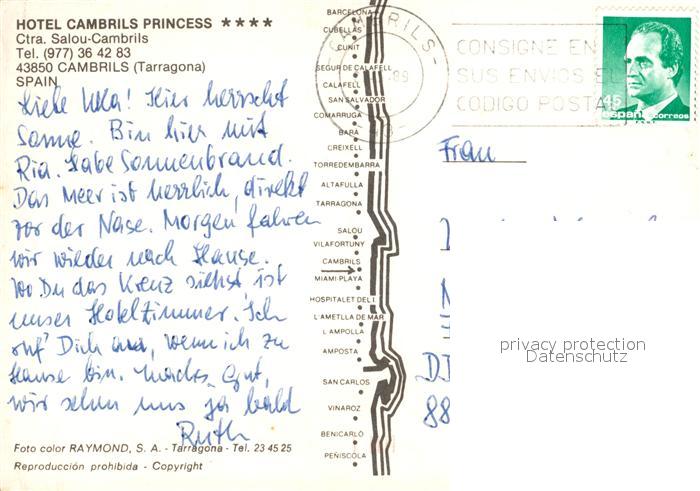 HOTEL CAMBRILS PRINCESS ★★★★
Ctra. Salou-Cambrils
Tel. (977) 36 42 83
43850 CAMBRILS (Tarragona)
SPAIN
Liebe Ulla! Hier herrscht
Sonne. Bin hier mit
Ria. Habe Sonnenbrand.
Das Meer ist herrlich, direkt
vor der Nase. Morgen fahren
wir wieder nach Hause.
Wo Du das Kreuz siehst ist
unser Hotelzimmer. Ich
ruf' Dich an, wenn ich zu
Hause bin. Machs Gut,
wir sehn uns ja bald
Ruth
Foto color RAYMOND, S. A. - Tarragona - Tel. 23 45 25
Reproducción prohibida - Copyright
BARCELONA
CUBELLAS
CUNIT
SEGUR DE CALAFELL
CALAFELL
SAN SALVADOR
COMARRUGA
BARA
CREIXELL
TORREDEMBARRA
ALTAFULLA
TARRAGONA
SALOU
VILAFORTUNY
CAMBRILS
MIAMI-PLAYA
HOSPITALET DEL I.
L'AMETLLA DE MAR
L'AMPOLLA
AMPOSTA
SAN CARLOS
VINAROZ
BENICARLÓ
PEÑISCOLA
CAMBRILS
89
CONSIGNE EN
SUS ENVIOS EL
CODIGO POSTAL
15
españa correos
Frau
88
privacy protection
Datenschutz